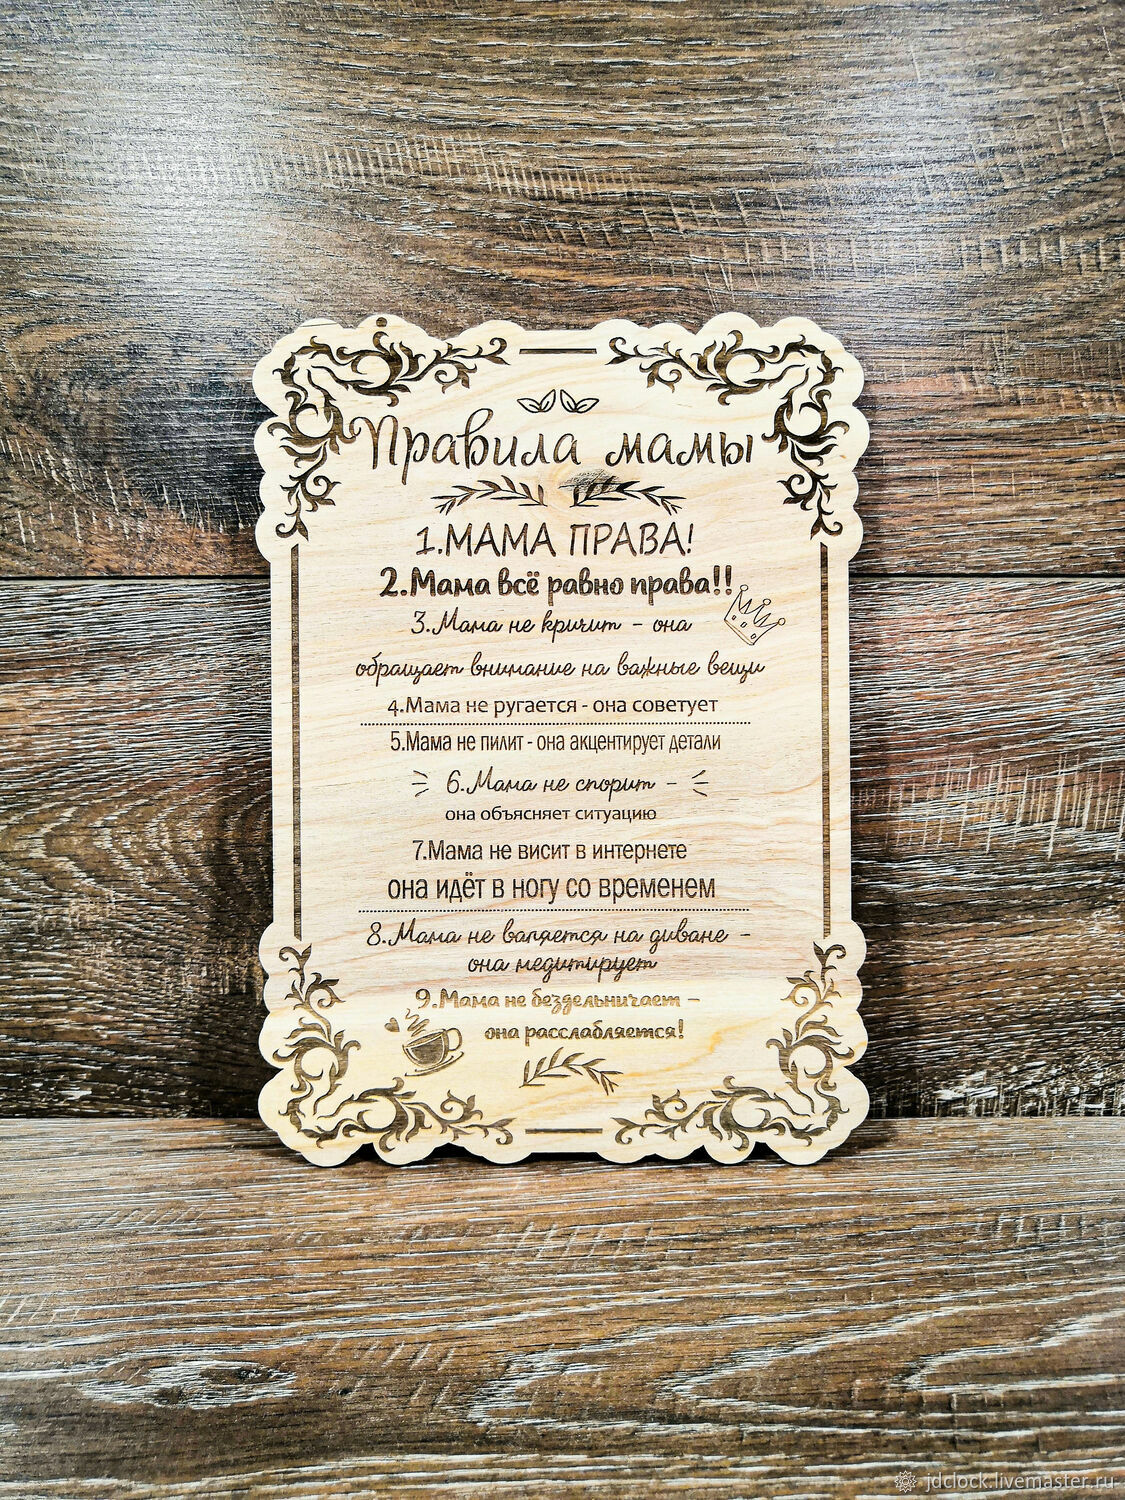 Правила мамы
1.МАМА ПРАВА!
2.Мама всё равно права!!
3.Мама не кричит - она
обращает внимание на важные вещи
4.Мама не ругается - она советует
5.Мама не пилит - она акцентирует детали
6.Мама не спорит -
она объясняет ситуацию
7.Мама не висит в интернете
она идёт в ногу со временем
8.Мама не валяется на диване -
она медитирует
9.Мама не бездельничает -
она расслабляется!
jdclock.livemaster.ru